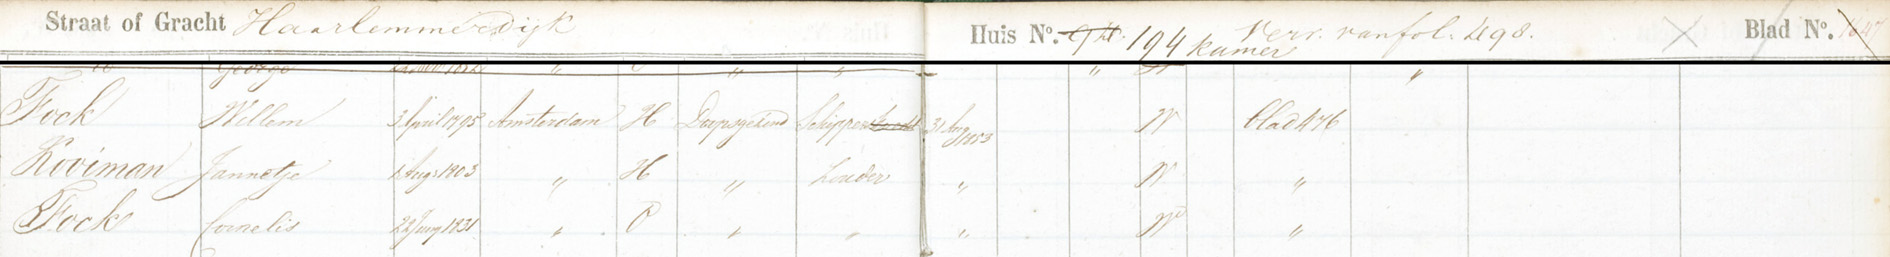 Straat of Gracht Haarlemmerdijk Huis No. 194 kamer Verv. van fol. 498. Blad No. 1647
George " " " " "
Fock Willem 3 April 1795 Amsterdam H Doopsgezind Schipper 31 Aug 1853 W blad 476
Kooiman Jannetje 1 Aug 1803 " H " Zonder " W "
Fock Cornelis 22 1831 " O " " " W "